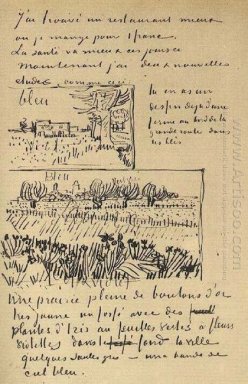 J'ai trouvé un restaurant mieux
où je mange pour 1 franc.
La santé va mieux ces jours ci
Maintenant j'ai deux nouvelles
études comme ceci
bleu
tu en as un
dessin déjà d'une
ferme au bord de la
grande route dans
les blés
Bleu
Une prairie pleine de boutons d'or
très jaune un fossé avec des
plantes d'iris au feuilles vertes à fleurs
violettes dans le fond la ville
quelques saules gris – une bande de
ciel bleu.